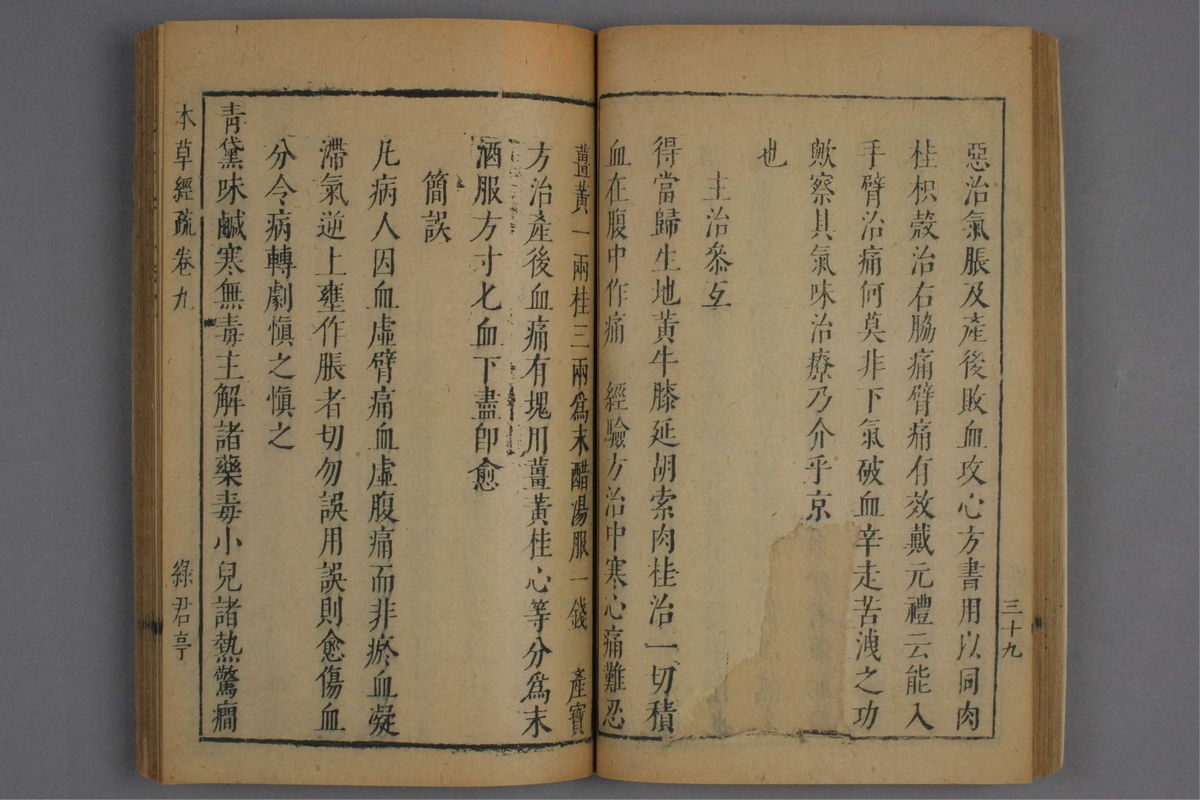 三十九
惡治氣脹及產後敗血攻心方書用以同肉
桂枳殼治右脇痛臂痛有效戴元禮云能入
手臂治痛何莫非下氣破血辛走苦洩之功
歟察其氣味治療乃介乎京
也
主治叅互
得當歸生地黃牛膝延胡索肉桂治一切積
血在腹中作痛 經驗方治中寒心痛難忍
薑黃一兩桂三兩爲末醋湯服一錢 產寶
方治產後血痛有塊用薑黃桂心等分爲末
酒服方寸匕血下盡卽愈
簡誤
凡病人因血虛臂痛血虛腹痛而非瘀血凝
滯氣逆上壅作脹者切勿誤用誤則愈傷血
分令病轉劇愼之愼之
青黛味鹹寒無毒主解諸藥毒小兒諸熱驚癇
本草經疏卷九
綠君亭